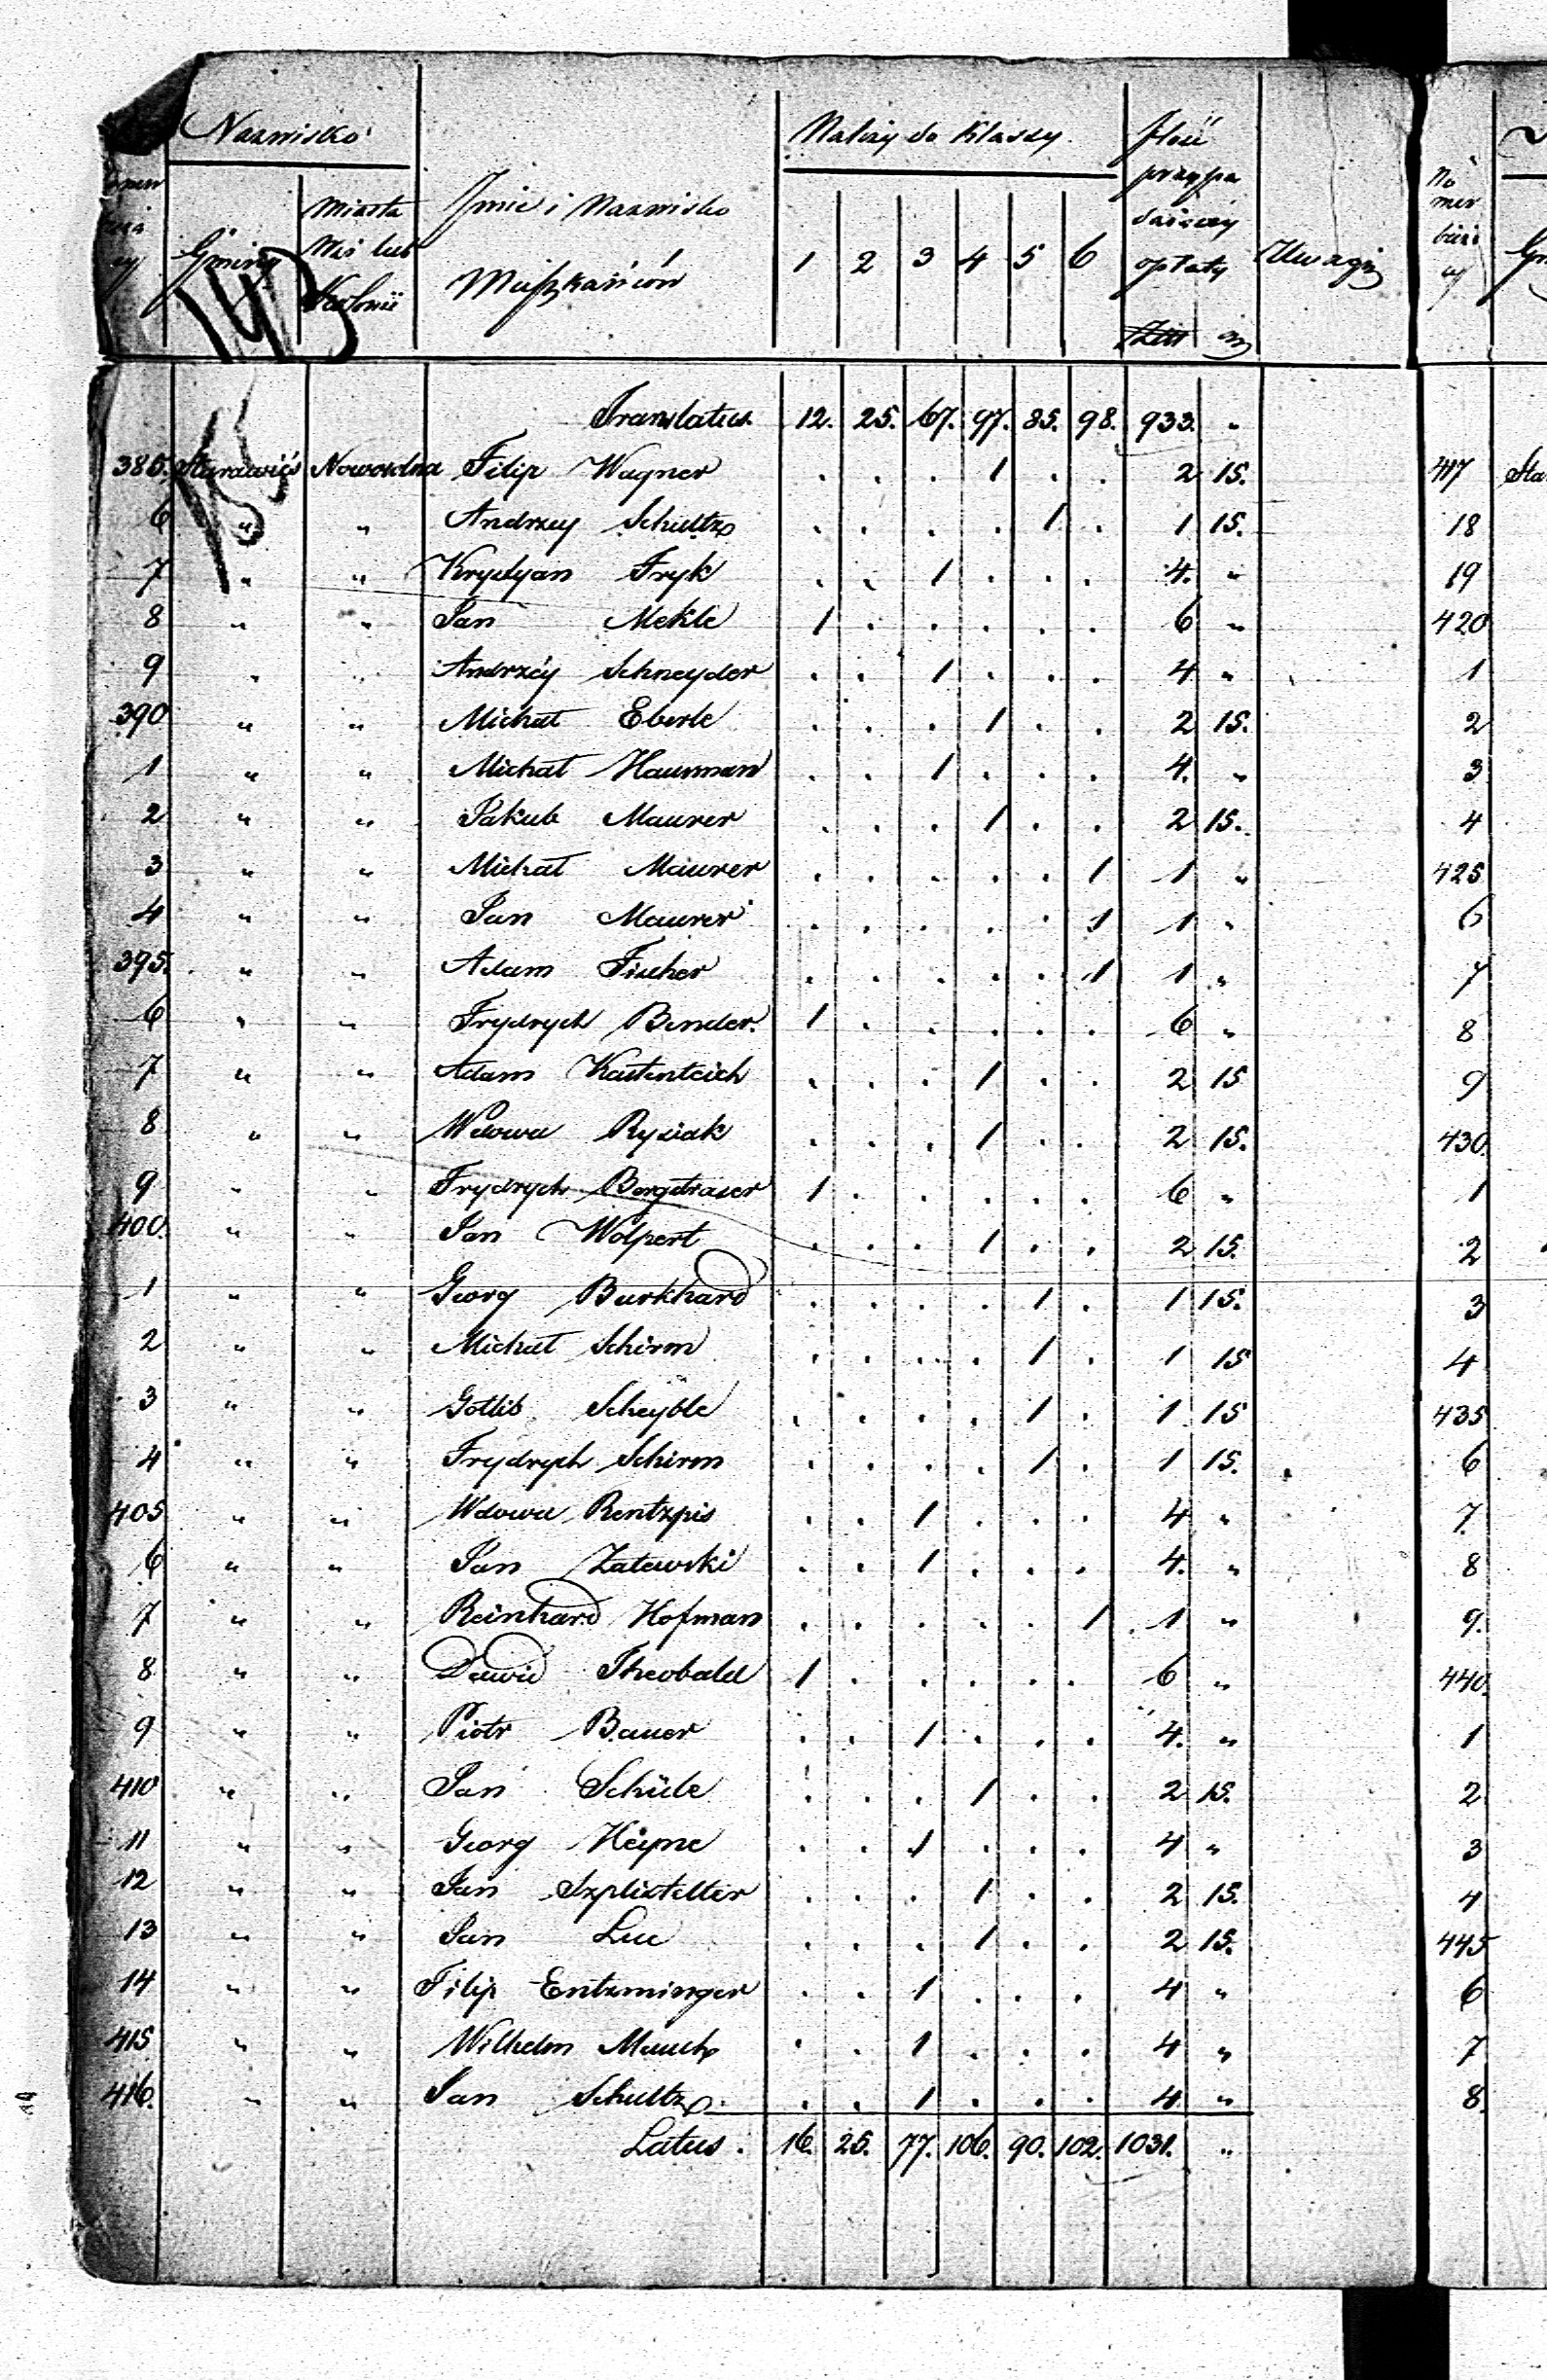 Nazwisko
Gminy
Miasta Wsi lub Kolonii
Jmie i Nazwisko Mieszkańców
Należy do Klassy
1 2 3 4 5 6
przypadaiącey opłaty
Uwagi
Translatus. 12. 25. 67. 97. 85. 98. 933. "
385. Starawieś Nowowolna Filip Wagner . . . 1 . . 2 15.
6 " " Andrzey Schultz . . . . 1 . 1 15.
7 " " Krystyan Fryk . . 1 . . . 4. "
8 " " Jan Mekle 1 . . . . . 6 "
9 " " Andrzéy Schneyder . . 1 . . . 4 "
390 " " Michał Eberle . . . 1 . . 2 15.
1 " " Michał Hausman . . 1 . . . 4. "
2 " " Jakub Maurer . . . 1 . . 2 15.
3 " " Michał Maurer . . . . . 1 1 "
4 " " Jan Maurer . . . . . 1 1 "
395. " " Adam Fischer . . . . . 1 1 "
6 " " Frydrych Bender. 1 . . . . . 6 "
7 " " Adam Kastenteich . . . 1 . . 2 15
8 " " Wdowa Rysiak . . . 1 . . 2 15.
9 " " Frydrych Bergstraser 1 . . . . . 6 "
400. " " Jan Wolpert . . . 1 . . 2 15.
1 " " Georg Burkhard . . . . 1 . 1 15.
2 " " Michał Schirm . . . . 1 . 1 15
3 " " Gotlib Scheyble . . . . 1 . 1 15
4 " " Frydrych Schirm . . . . 1 . 1 15.
405 " " Wdowa Rentzpis . . 1 . . . 4 "
6 " " Jan Zalewski . . 1 . . . 4. "
7 " " Reinhard Hofman . . . . . 1 1 "
8 " " Dawid Theobald 1 . . . . . 6 "
9 " " Piotr Bauer . . 1 . . . 4. "
410 " " Jan Schüle . . . 1 . . 2 15.
11 " " Georg Heyne . . 1 . . . 4 "
12 " " Jan Szplitstelter . . . 1 . . 2 15.
13 " " Jan Luc . . . 1 . . 2 15.
14 " " Filip Entzminger . . 1 . . . 4 "
415 " " Wilhelm Mauch . . 1 . . . 4 "
416. " " Jan Schultz . . 1 . . . 4 "
Latus. 16. 25. 77. 106. 90. 102. 1031. "
No mer bieżą cy
417 Sta
18
19
420
1
2
3
4
425
6
7
8
9
430.
1
2
3
4
435
6
7.
8
9.
440.
1
2
3
4
445
6
7
8.